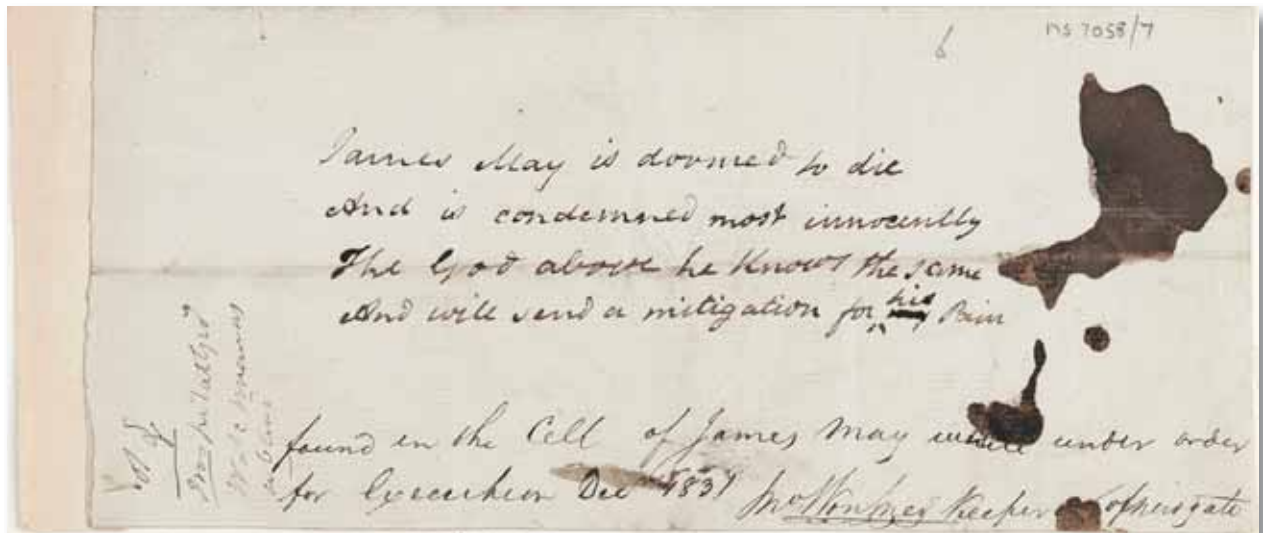 6
MS 7058/7
James May is doomed to die
And is condemned most innocently
The God above he Knows the same
And will send a mitigation for his Pain
found in the Cell of James May while under order
for Execution Dec 1831
Keeper of Newgate